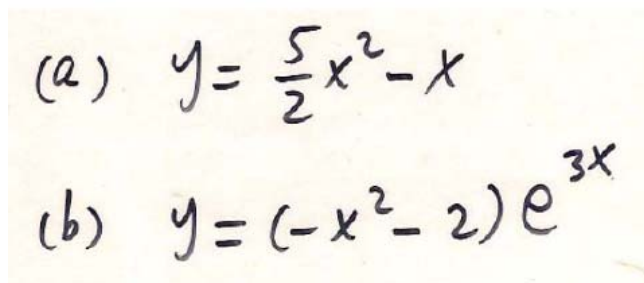 (a) y = 5/2 x² - x
(b) y = (-x² - 2) e^{3x}